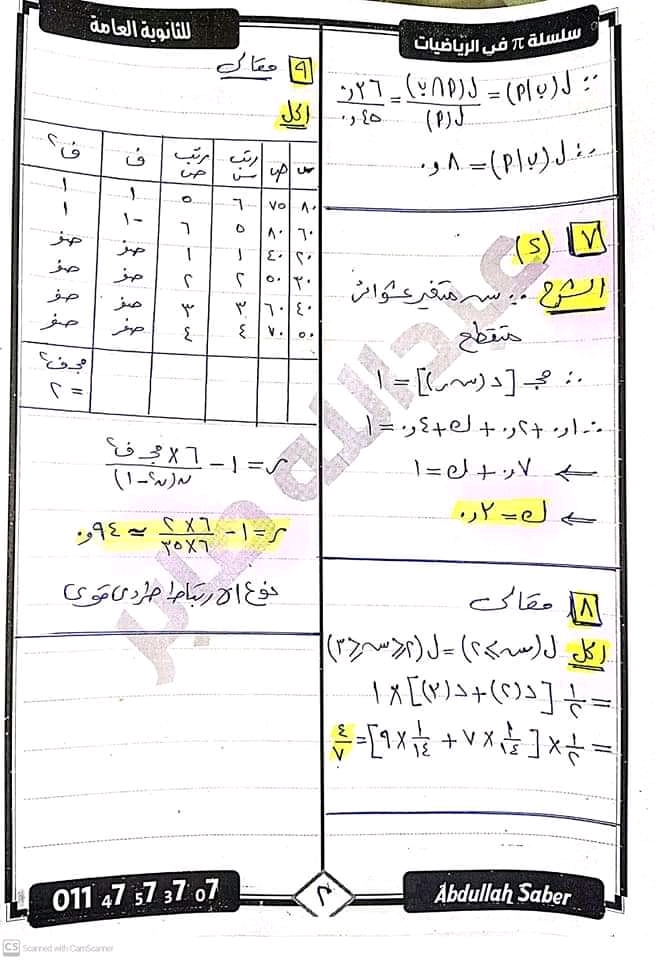 سلسلة π في الرياضيات
للثانوية العامة
∴ ل(ب|P) = ل(P∩ب) / ل(P) = ٠٫٣٦ / ٠٫٤٥
∴ ل(ب|P) = ٠٫٨
٧ (د)
الشرح ∵ سـ متغير عشوائى
متقطع
∴ مجـ [د(سـر)] = ١
∴ ٠٫١ + ٠٫٢ + ك + ٠٫٤ = ١
← ٠٫٧ + ك = ١
← ك = ٠٫٢
٨ مقالى
الحل ل(سـ ≥ ٢) = ل(٢ ≤ سـ ≤ ٣)
= ١/٢ [د(٢) + د(٣)] × ١
= ١/٢ × [١/١٤ × ٧ + ١/١٤ × ٩] = ٤/٧
٩ مقالى
الحل
س ص رتب س رتب ص ف ف٢
٨٠ ٧٥ ٦ ٥ ١ ١
٦٠ ٨٠ ٥ ٦ -١ ١
٢٠ ٤٠ ١ ١ صفر صفر
٣٠ ٥٠ ٢ ٢ صفر صفر
٤٠ ٦٠ ٣ ٣ صفر صفر
٥٠ ٧٠ ٤ ٤ صفر صفر
مجـ ف٢
= ٢
ر = ١ - ٦ × مجـ ف٢ / ن(ن٢ - ١)
ر = ١ - ٦ × ٢ / ٦ × ٣٥ ≈ ٠٫٩٤
نوع الارتباط طردى قوى
عبدالله صابر
011 47 57 37 07
٢
Abdullah Saber
CS Scanned with CamScanner